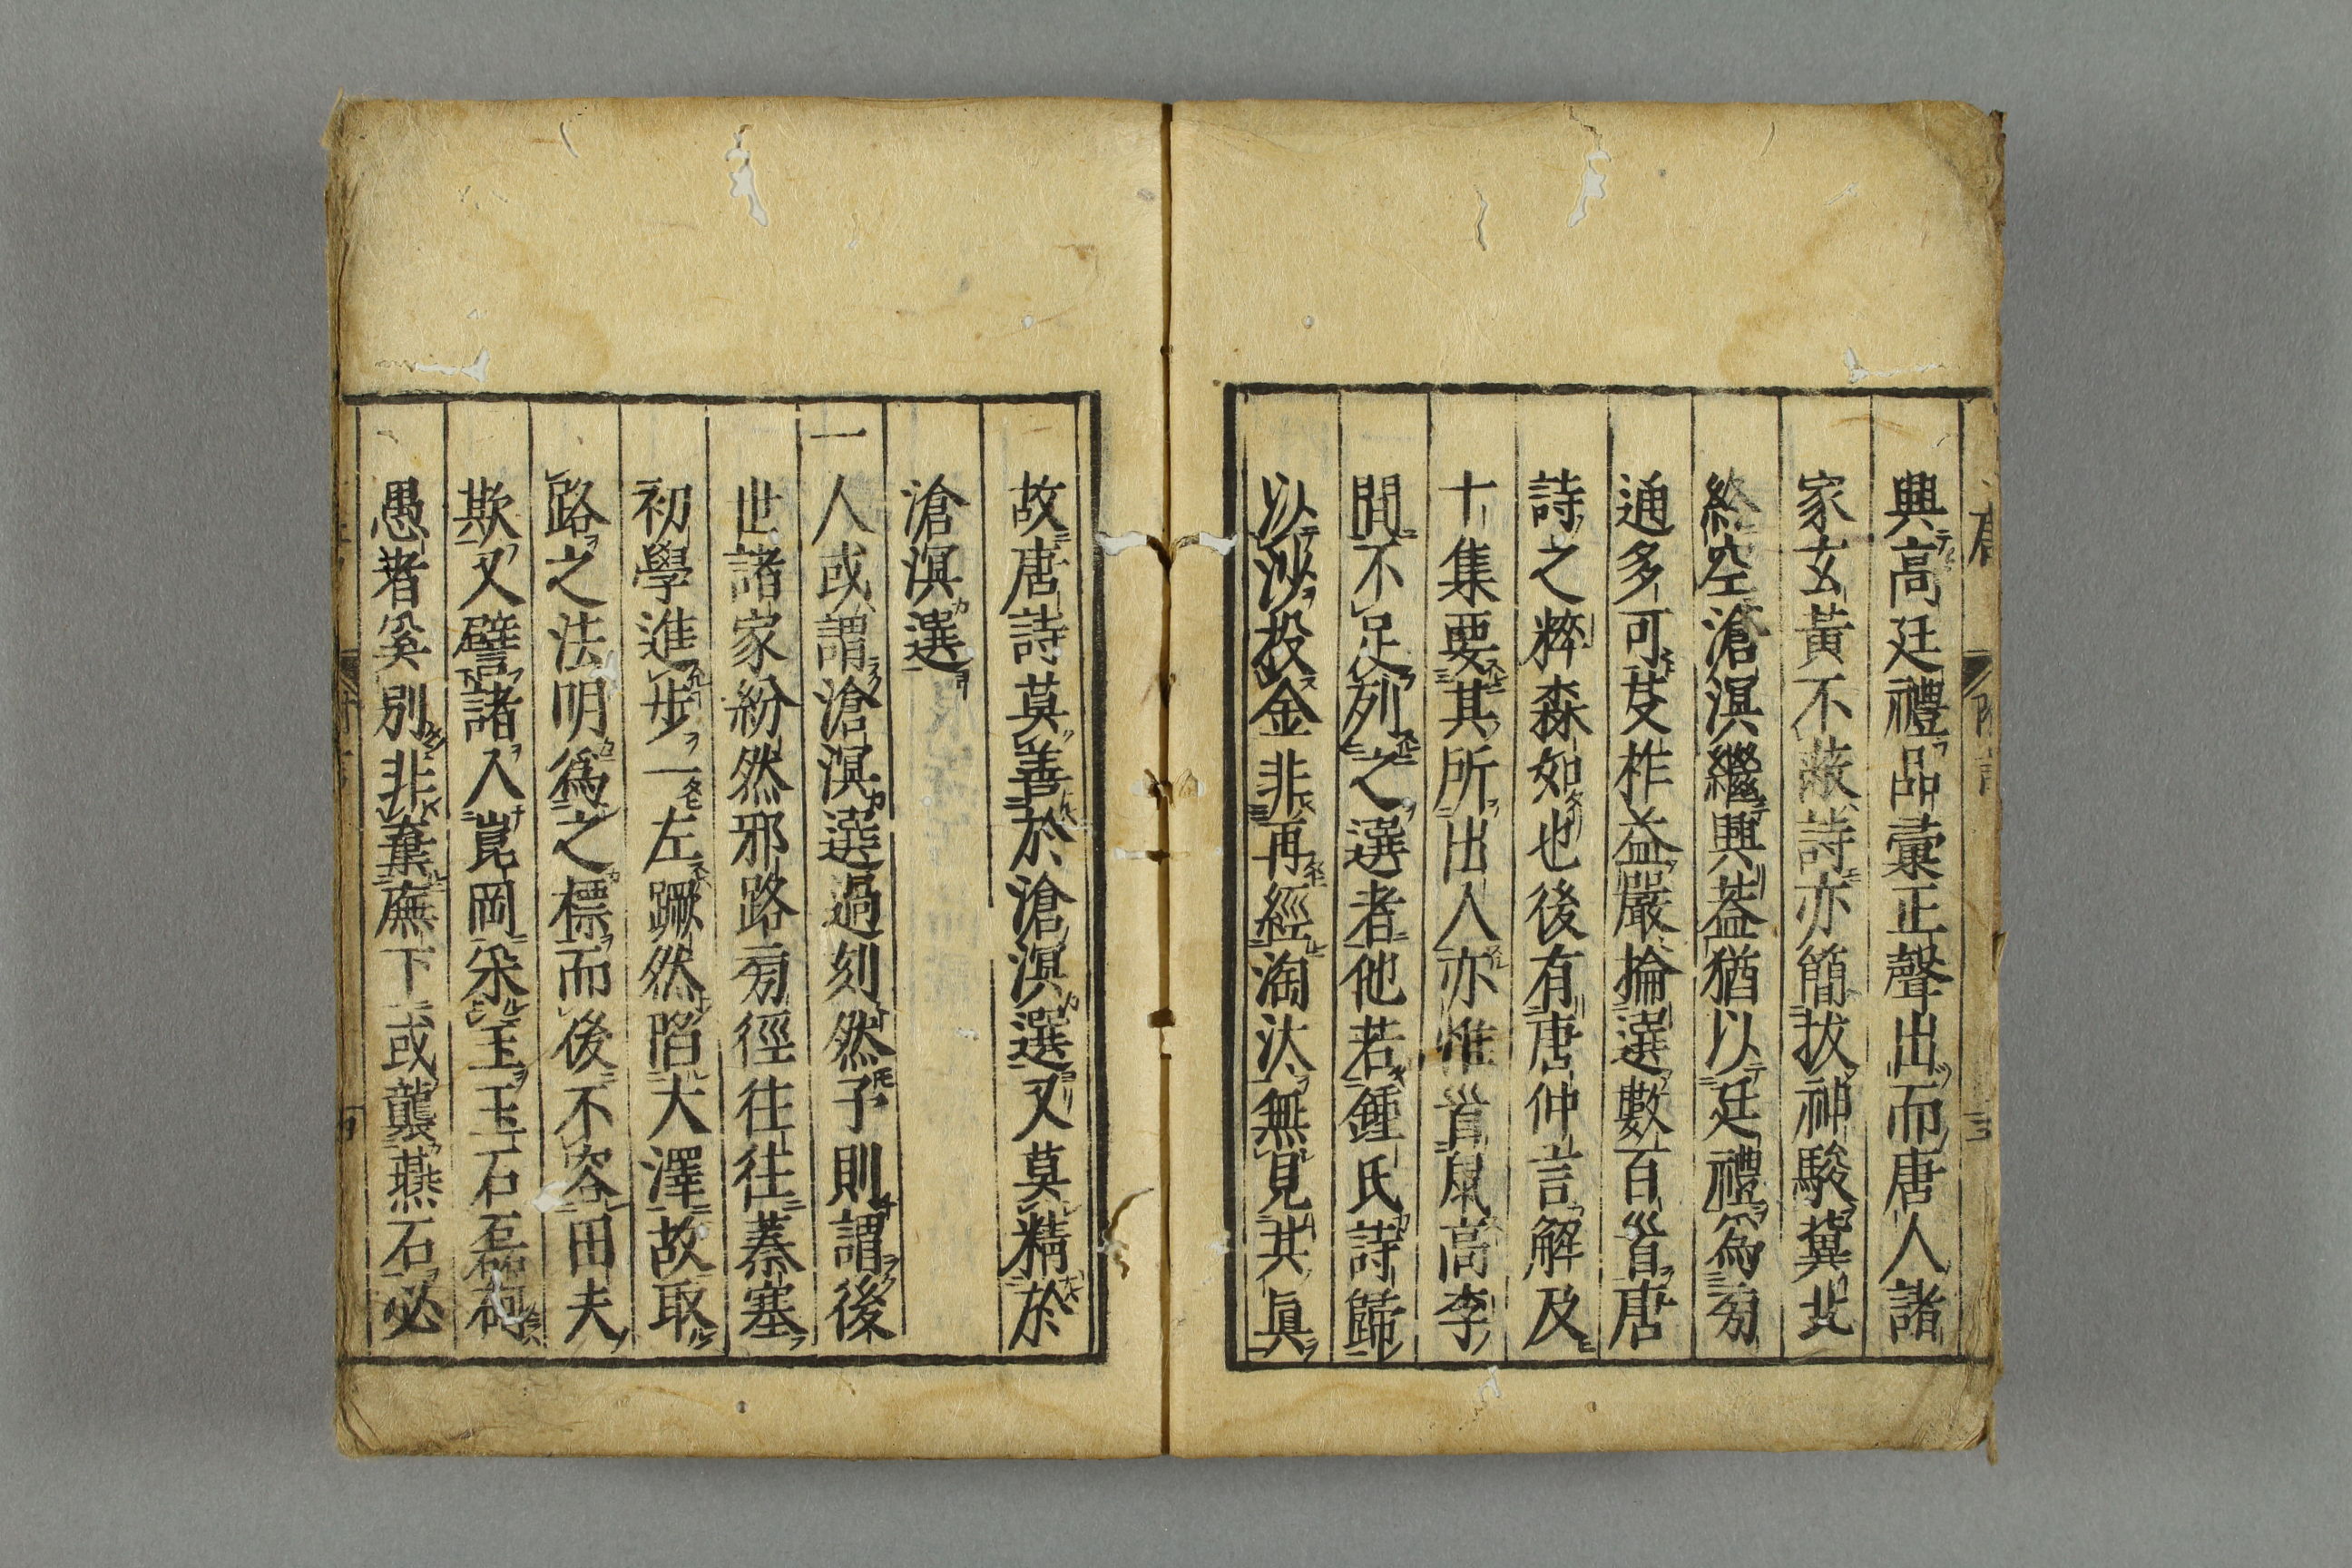 興高廷禮品彙正聲出而唐人諸
家玄黃不蔽詩亦簡拔神駿冀北
終空滄溟繼興葢猶以廷禮爲易
通多可芟柞益嚴掄選數百首唐
詩之粹森如也後有唐仲言解及
十集要其所出入亦惟首鼠高李
間不足列之選者他若鍾氏詩歸
以沙投金非再經淘汰無見其眞
故唐詩莫善於滄溟選又莫精於
滄溟選
一人或謂滄溟選過刻然予則謂後
世諸家紛然邪路旁徑往往蓁塞
初學進步一左蹶然陷大澤故取
路之法明爲之標而後不容田夫
欺又譬諸入崑岡采玉玉石磊砢
愚者奚別非棄廡下或襲燕石必